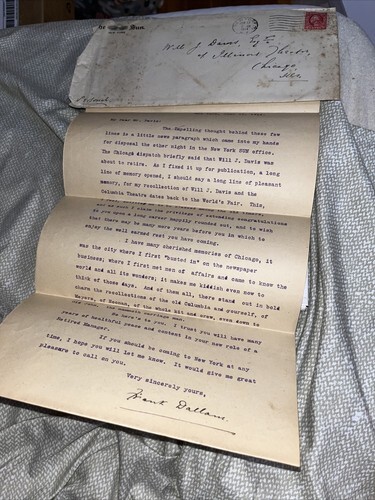 The Sun.
NEW YORK.
Will J Davis, Esq
Illinois Theatre,
Chicago,
Ills.
My dear Mr. Davis:
The impelling thought behind these few
lines is a little news paragraph which came into my hands
for disposal the other night in the New York SUN office.
The Chicago dispatch briefly said that Will J. Davis was
about to retire. As I fixed it up for publication, a long
line of memory opened, I should say a long line of pleasant
memory, for my recollection of Will J. Davis and the
Columbia Theatre dates back to the World's Fair.
the privilege of extending congratulations
to you upon a long career happily rounded out, and to wish
that there may be many more years before you in which to
enjoy the well earned rest you have coming.
I have many cherished memories of Chicago, it
was the city where I first "busted in" on the newspaper
business; where I first met men of affairs and came to know the
world and all its wonders; it makes me kiddish even now to
think of those days. And of them all, there stand out in bold
charm the recollections of the old Columbia and yourself, of
Mayers, of Keenan, of the whole kit and crew, even down to
carriage man.
So here's to you. I trust you will have many
years of healthful peace and content in your new role of a
Retired Manager.
If you should be coming to New York at any
time, I hope you will let me know. It would give me great
pleasure to call on you.
Very sincerely yours,
Frank Dallam.